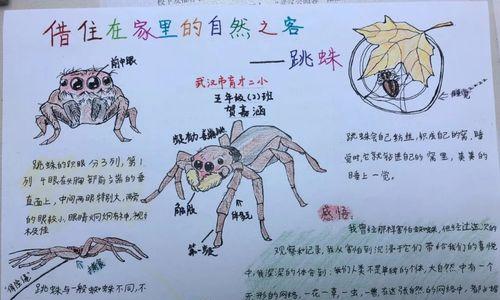 借住在家里的自然之客
——跳蛛
武汉市育才二小
五年级(2)班
贺嘉涵
前中眼
触肢
第一步足
睡觉
跳蛛的跳眼分3列,第1
列4眼在头胸部前端的垂
直面上,中间两眼特别大,两旁
的眼较小,眼睛炯炯有神,视
捕食
跳蛛与一般蜘蛛不同,不
跳蛛会自己纺丝,织成自己的窝,睡
觉时,它就钻进自己的窝里,美美的
睡上一觉。
感悟:
我曾经那样害怕蜘蛛,但经过这次的
观察和记录,我从害怕到沉浸于它们带给我们的喜悦
中,我深深的体会到:我们人类不是单独的个体,大自然中有一个
无形的网络,一花一草,一虫,一